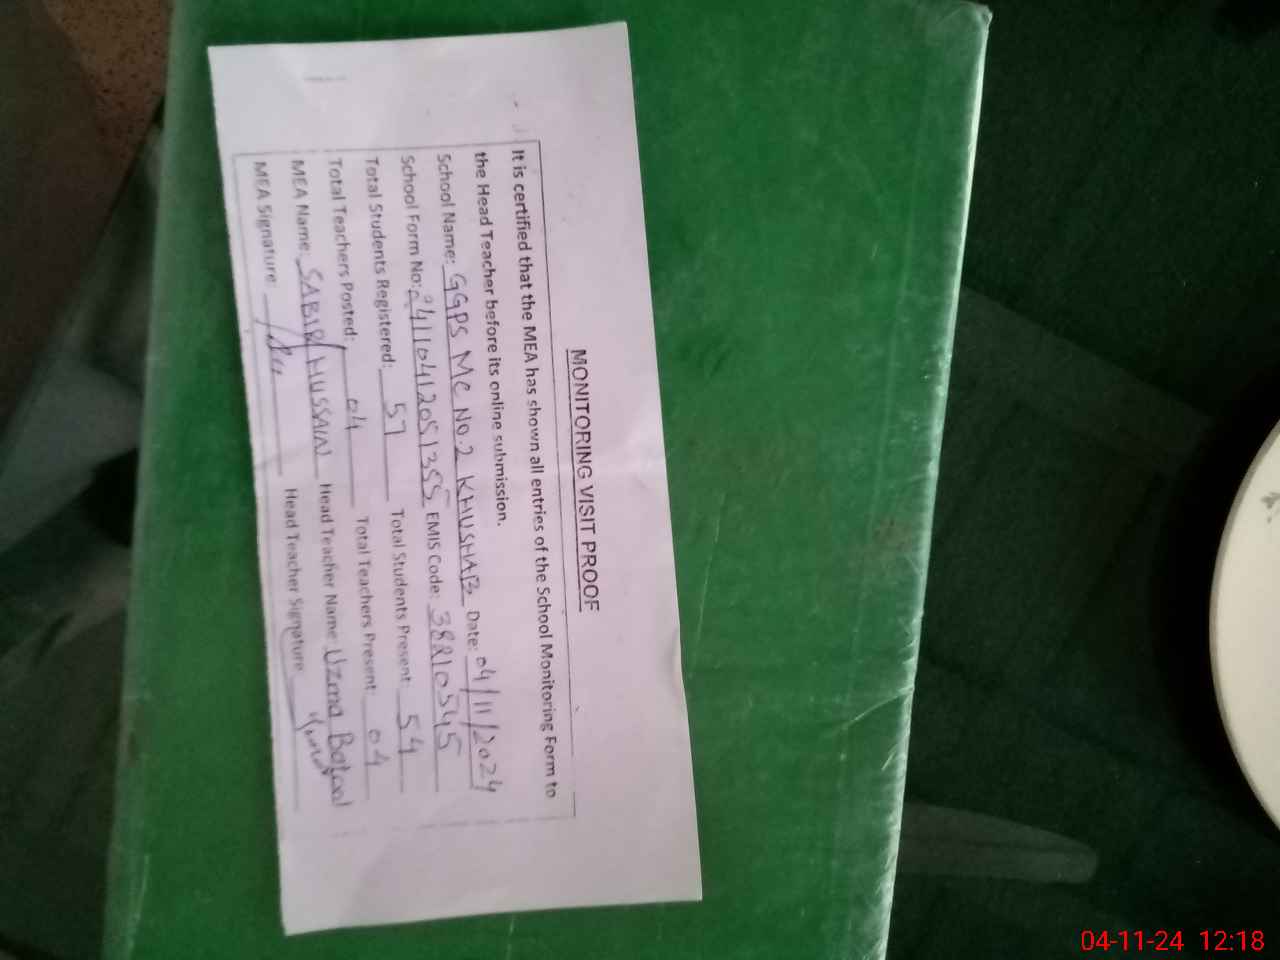 MONITORING VISIT PROOF
It is certified that the MEA has shown all entries of the School Monitoring Form to
the Head Teacher before its online submission.
School Name: GGPS MC NO.2 KHUSHAB Date: 04/11/2024
School Form No: 24110412051355 EMIS Code: 38210545
Total Students Registered: 57 Total Students Present: 54
Total Teachers Posted: 04 Total Teachers Present: 04
MEA Name: SABIR HUSSAIN Head Teacher Name: Uzma Batool
MEA Signature: Head Teacher Signature
04-11-24 12:18